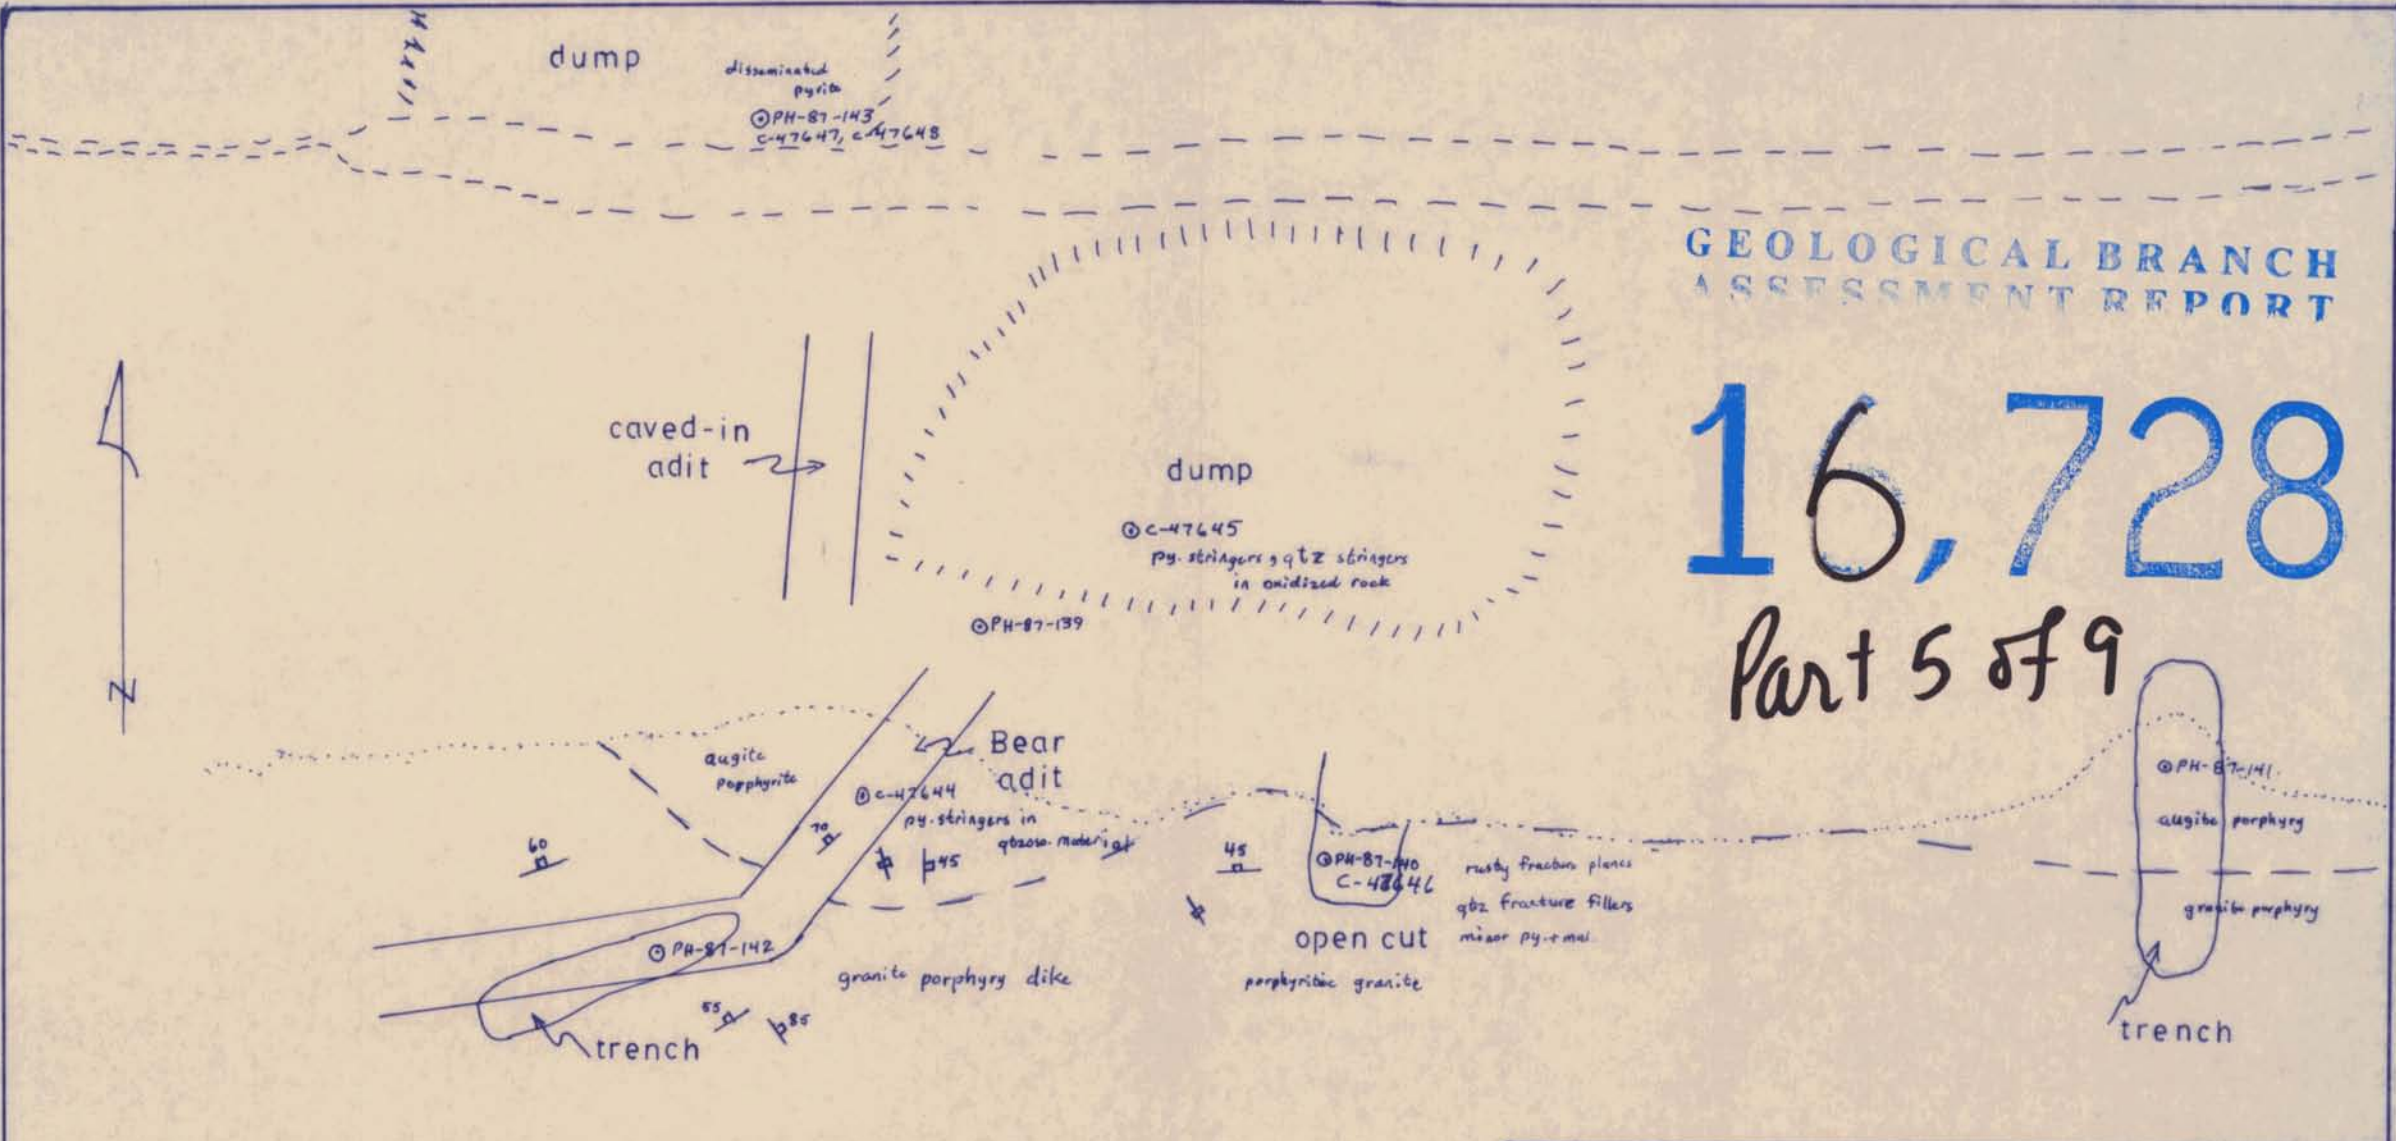 dump
disseminated
pyrite
PH-87-143
C-47647, C-47648
GEOLOGICAL BRANCH
ASSESSMENT REPORT
16,728
Part 5 of 9
caved-in
adit
dump
C-47645
py. stringers, qtz stringers
in oxidized rock
PH-87-139
N
Bear
adit
augite
porphyrite
C-47644
py. stringers in
qtzose material
70
60
45
45
PH-87-140
C-47646
rusty fracture planes
qtz fracture fillers
minor py. + mal.
open cut
porphyritic granite
PH-87-141
augite porphyry
granite porphyry
trench
PH-87-142
granite porphyry dike
55
85
trench